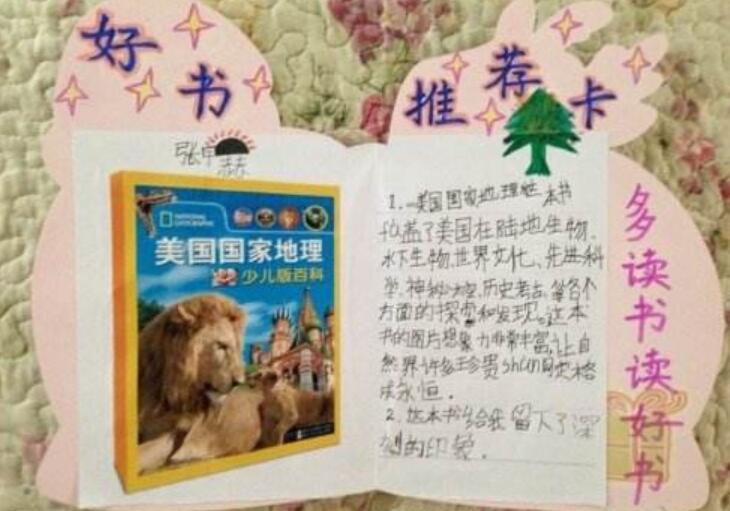 好书
推荐卡
张中
赫
NATIONAL GEOGRAPHIC
美国国家地理
少儿版百科
1、美国国家地理 本书
涵盖了美国在陆地生物、
水下生物、世界文化、先进科
学、神秘太空、历史考古、等各个
方面的探索和发现。这本
书的图片想象力非常丰富,让自
然界许多珍贵shùn间定格
成永恒。
2、这本书给我留下了深
刻的印象。
多读书读好书